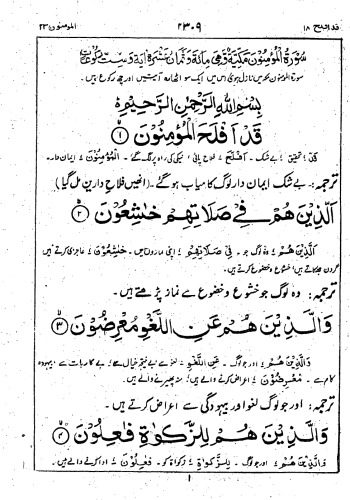 قد افلح ۱۸ ۲۳۰۹ المؤمنون ۲۳
سُوْرَةُ الْمُؤْمِنُوْنَ مَكِّيَّةٌ وَّهِيَ مِائَةٌ وَّثَمَانَ عَشْرَةَ اٰيَةً وَّسِتُّ رُكُوْعَاتٍ
سورۃ المؤمنون مکہ میں نازل ہوئی اس میں ایک سو اٹھارہ آیتیں اور چھ رکوع ہیں۔
بِسْمِ اللّٰهِ الرَّحْمٰنِ الرَّحِيْمِ
قَدْ اَفْلَحَ الْمُؤْمِنُوْنَ ۙ﴿۱﴾
قَدْ : تحقیق، بے شک۔ اَفْلَحَ : فلاح پائی، نیکی کی راہ پر لگ گئے۔ الْمُؤْمِنُوْنَ : ایمان دار۔
ترجمہ: بے شک ایمان دار لوگ کامیاب ہو گئے۔ (انھیں فلاحِ دارین مل گیا)
الَّذِيْنَ هُمْ فِيْ صَلَاتِهِمْ خٰشِعُوْنَ ۙ﴿۲﴾
الَّذِيْنَ هُمْ : وہ لوگ جو۔ فِيْ صَلَاتِهِمْ : اپنی نمازوں میں۔ خٰشِعُوْنَ : عاجزی کرتے ہیں
گردن جھکاتے ہیں، خشوع و خضوع کرتے ہیں۔
ترجمہ: وہ لوگ جو خشوع و خضوع سے نماز پڑھتے ہیں۔
وَالَّذِيْنَ هُمْ عَنِ اللَّغْوِ مُعْرِضُوْنَ ۙ﴿۳﴾
وَالَّذِيْنَ هُمْ : اور جو لوگ۔ عَنِ اللَّغْوِ : لغو سے بے نتیجہ خیال سے، بے کار بات سے، بیہودہ
کام سے۔ مُعْرِضُوْنَ : اعراض کرنے والے ہیں، منہ پھیرنے والے ہیں۔
ترجمہ: اور جو لوگ لغو اور بیہودگی سے اعراض کرتے ہیں۔
وَالَّذِيْنَ هُمْ لِلزَّكٰوةِ فٰعِلُوْنَ ۙ﴿۴﴾
وَالَّذِيْنَ هُمْ : اور جو لوگ۔ لِلزَّكٰوةِ : زکوٰۃ کو۔ فٰعِلُوْنَ : ادا کرنے والے ہیں۔